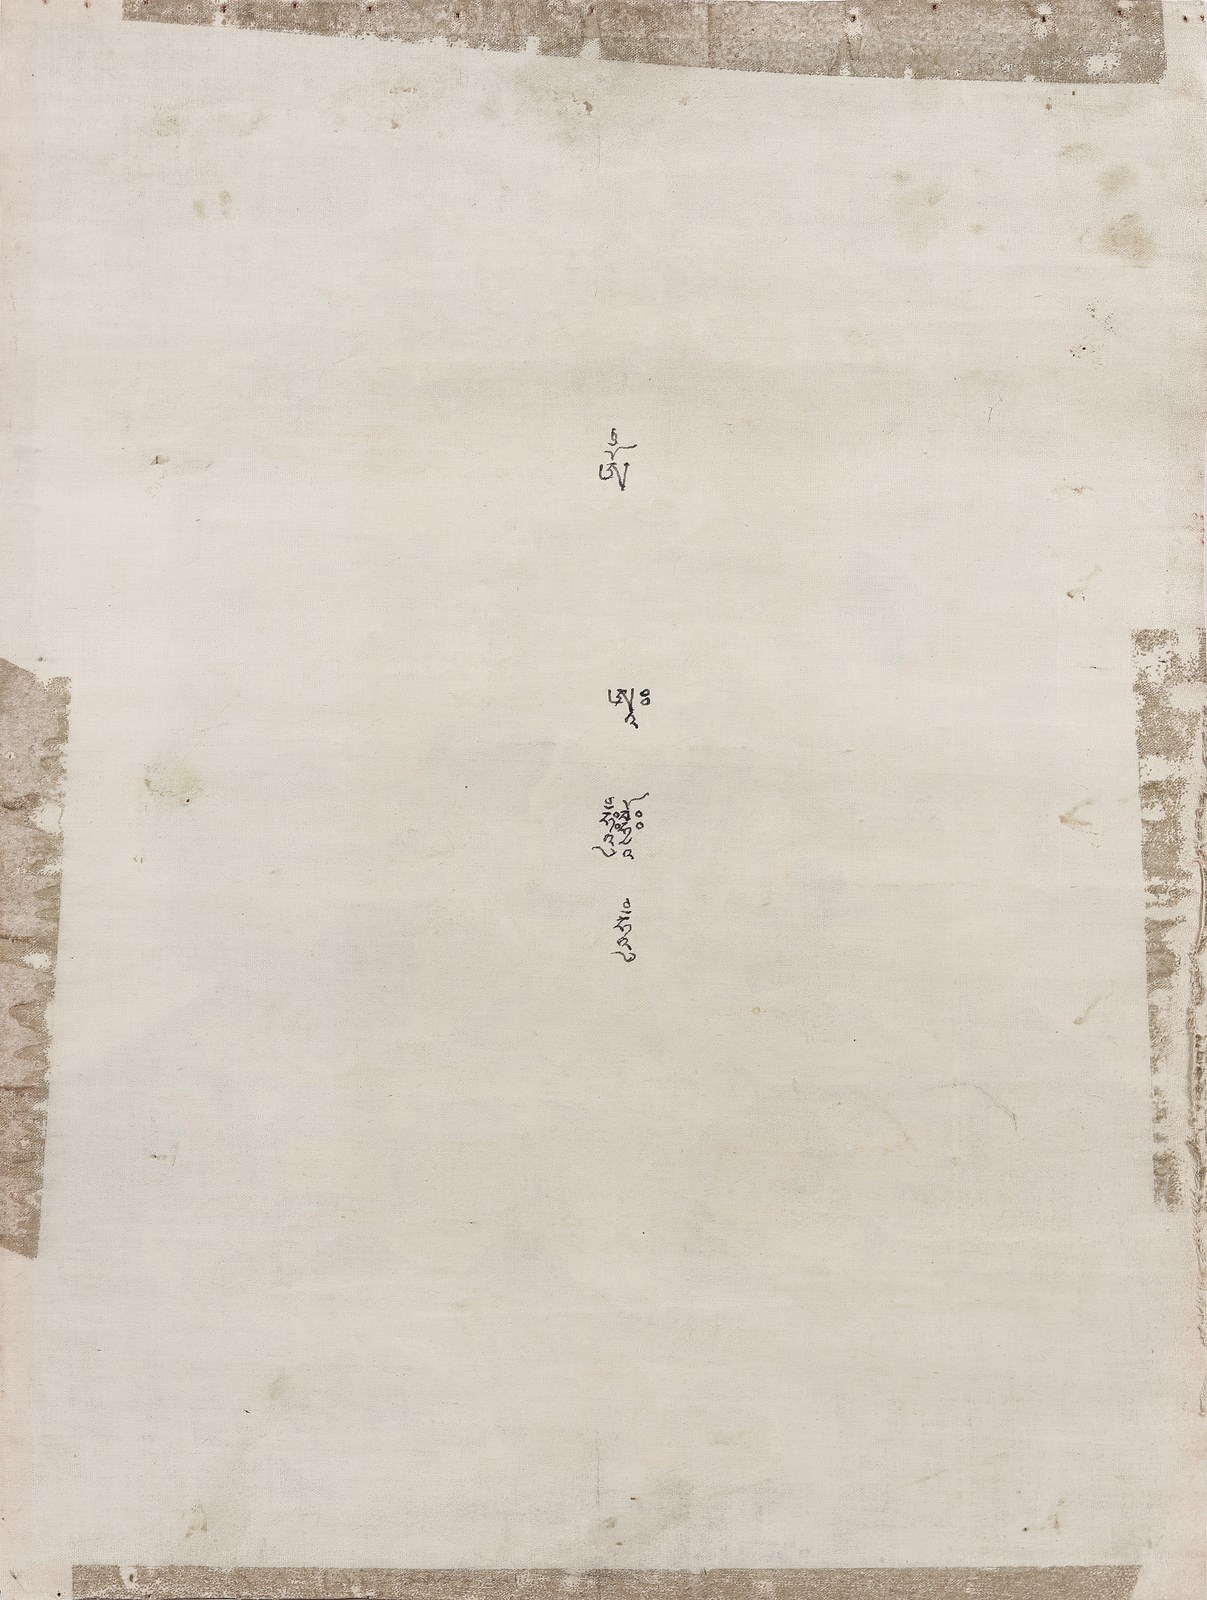 ཨོཾ
ཨཱཿ
ཧཱུྃ
ཧཱུྃ